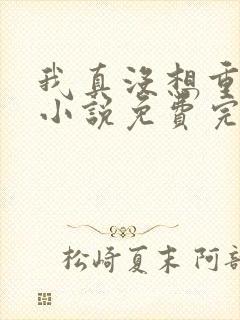 我真没想重
小说免费完
松崎夏末 阿部